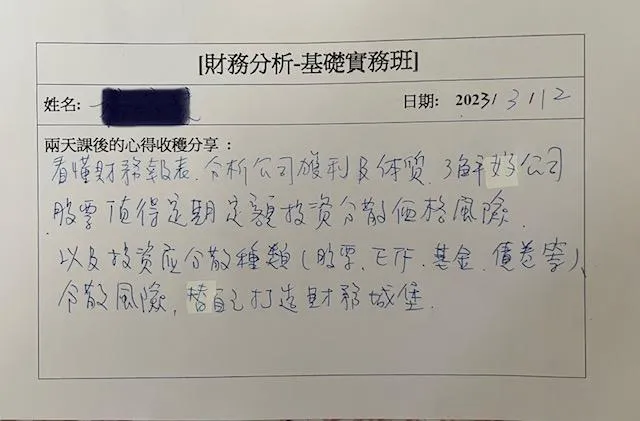 [財務分析-基礎實務班]
姓名: 日期: 2023/3/12
兩天課後的心得收穫分享：
看懂財務報表、分析公司獲利及体質、了解好公司
股票值得定期定額投資分散価格風險、
以及投資应分散種類(股票、ETF、基金、債券等)、
分散風險、替自己打造財務城堡.